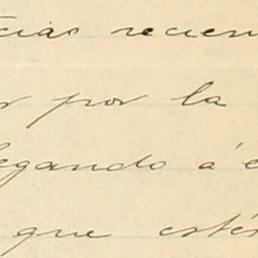 cias recien
r por la
legando á e
que esté